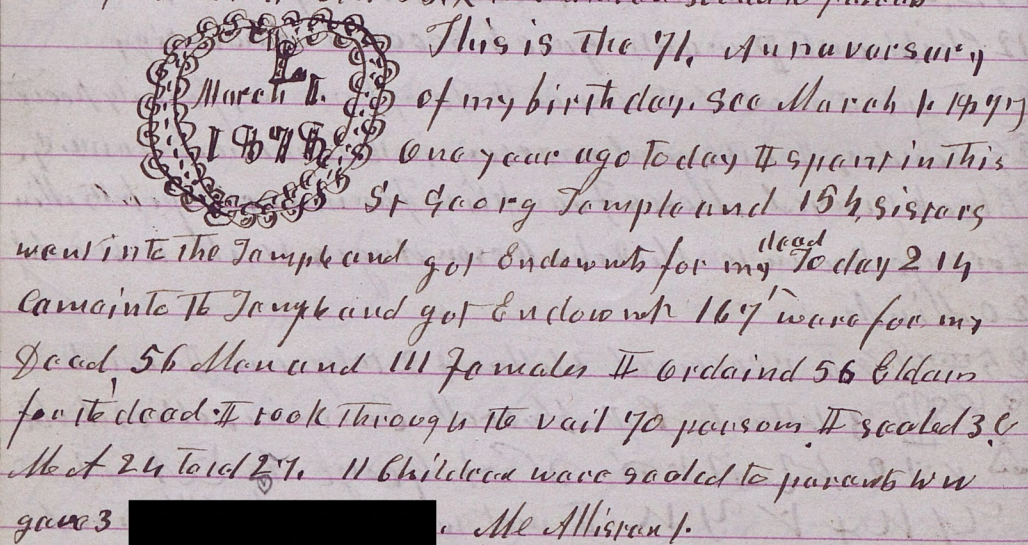 L
March 1.
1878
This is the 71, Annaversary
of my birth day. See March 1. 1877
One year ago to day I spent in this
St Georg Temple and 154, sisters
went into the Temple and got Endowmts for my dead To day 214
Came into th Temple and got Endowmt 167 were for my
Dead 56 Men and 111 Females I ordaind 56 Elders
for the dead. I took through the vail 70 persons I sealed 3.
McA 24 total 27. 11 Children were sealed to parents WW
gave 3 Mc Allister 1.